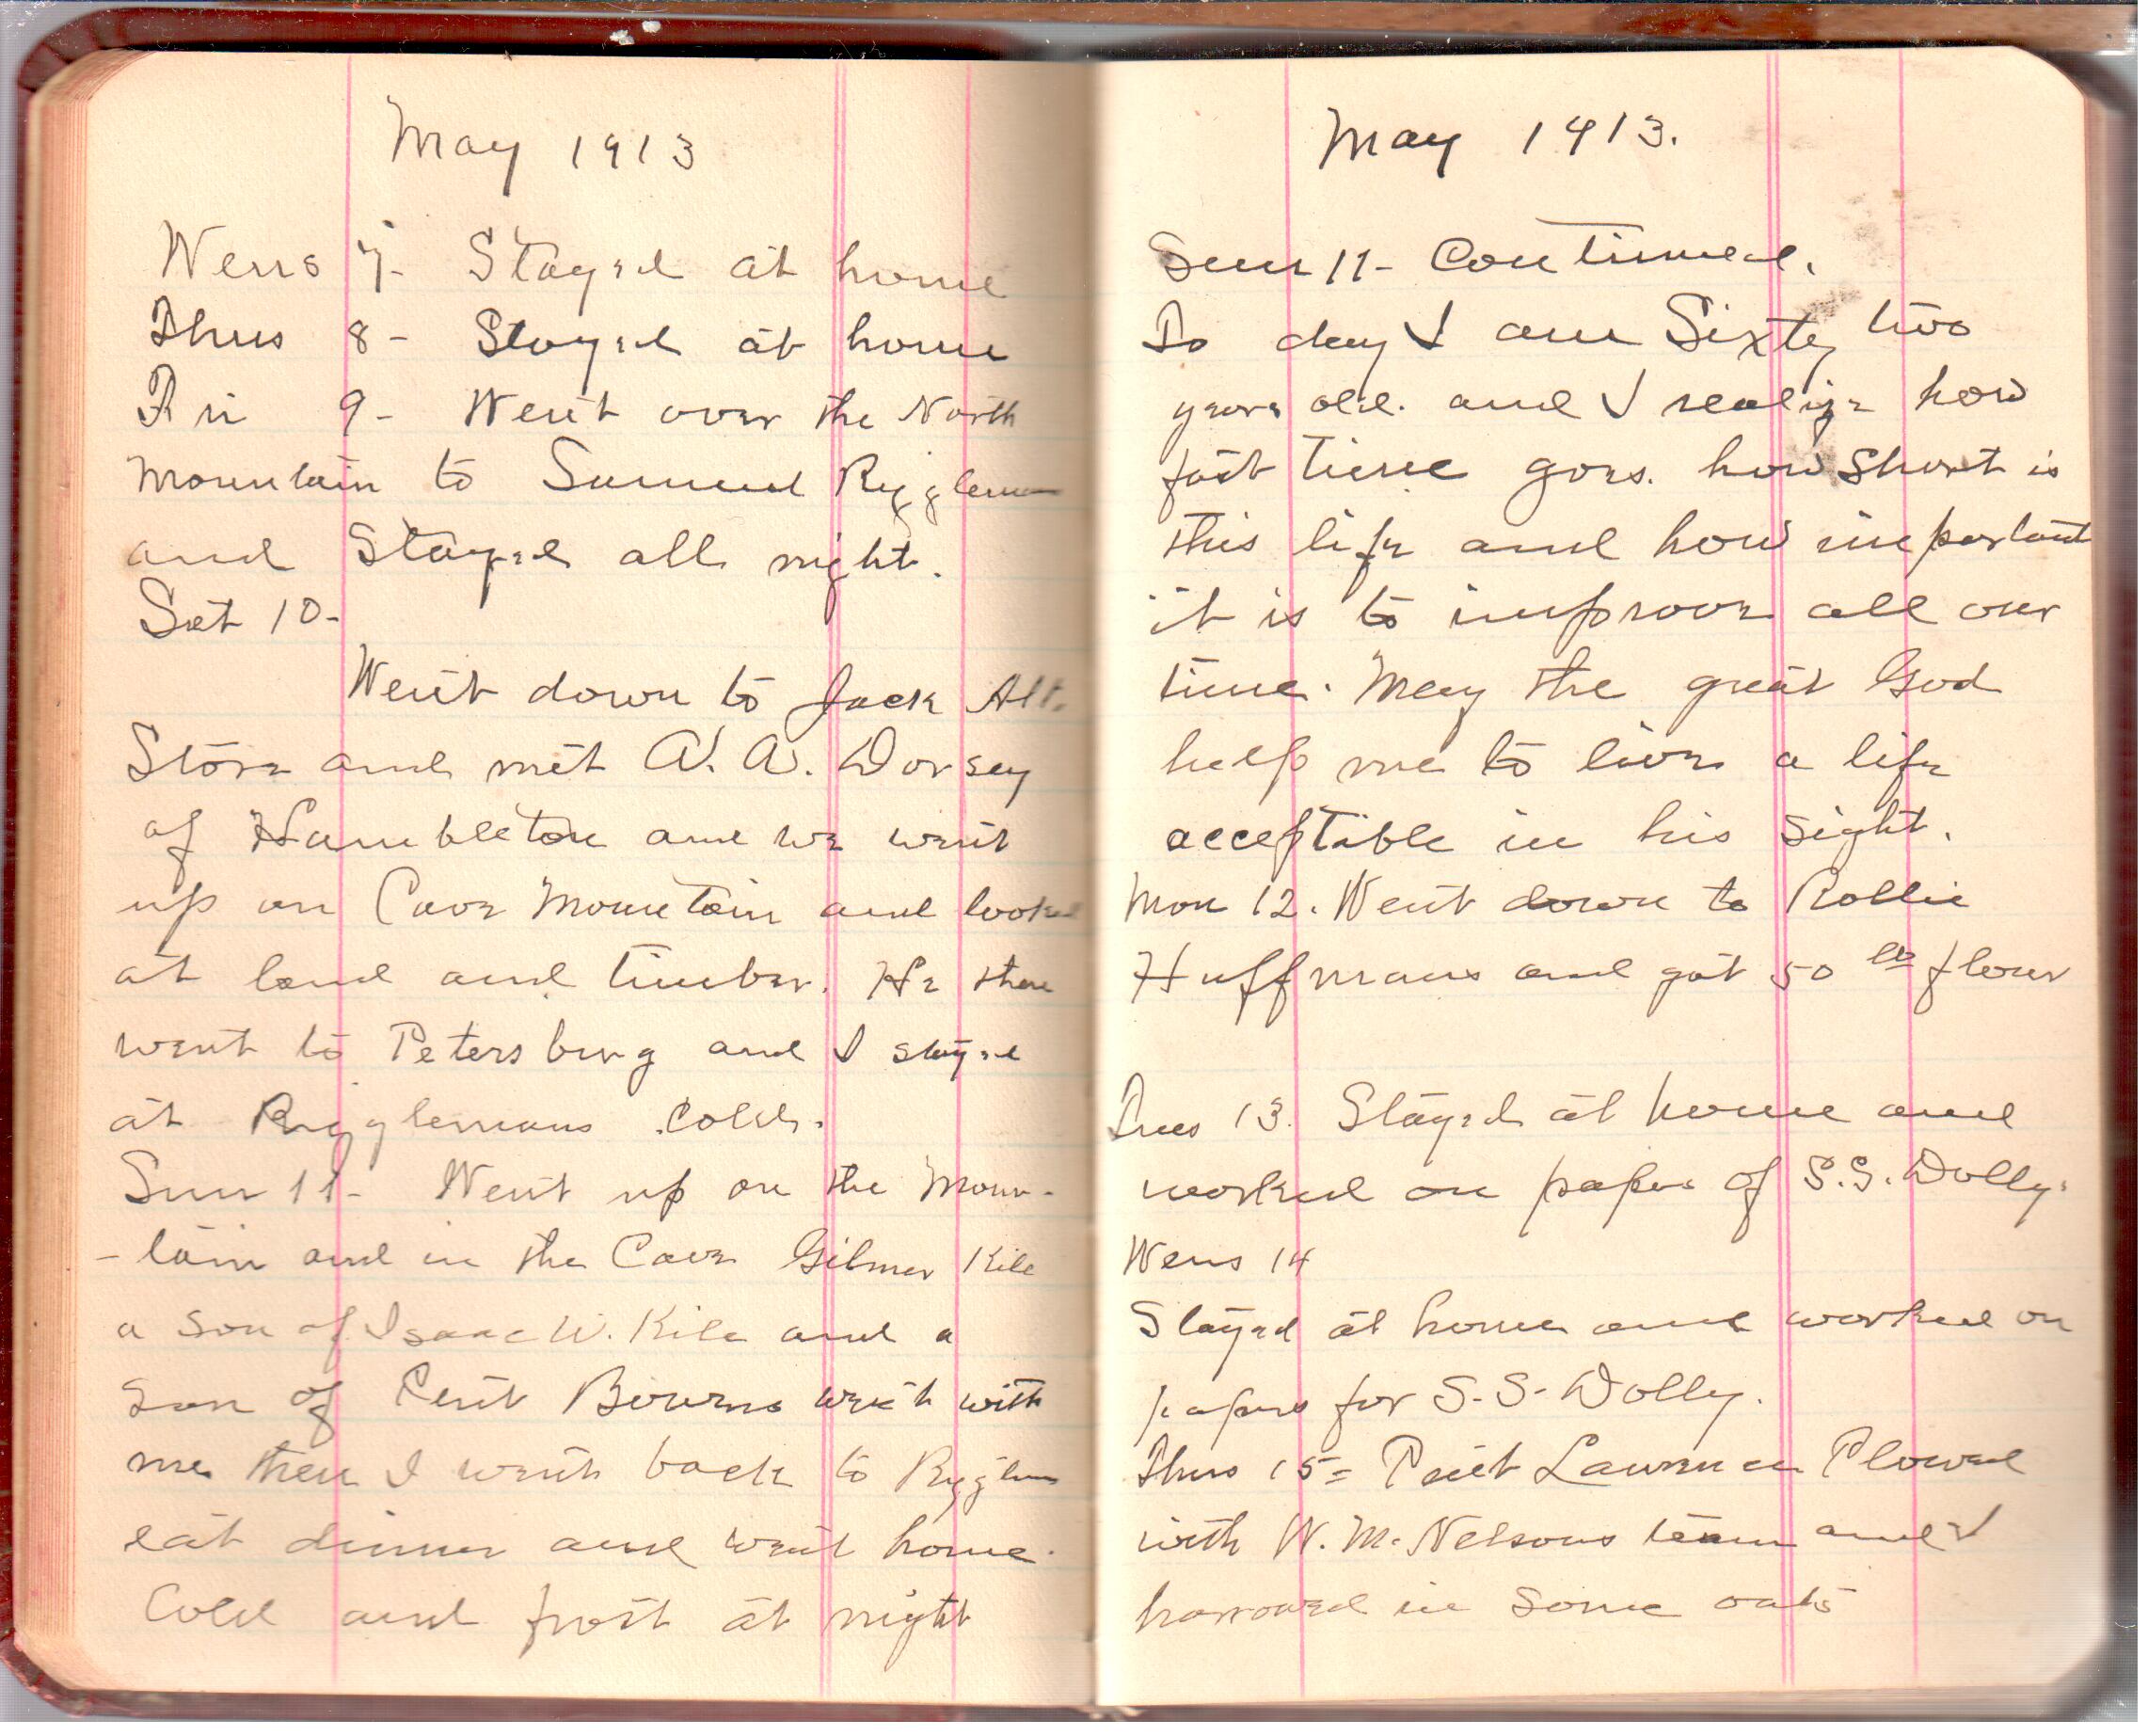 May 1913
Wens 7- Stayed at home
Thus 8- Stayed at home
Fri 9- Went over the North
Mountain to Samuel Riggleman
and Stayed all night.
Sat 10-
Went down to Jack Alt.
Store and met A. A. Dorsey
of Hambleton and we went
up on Cave Mountain and looked
at land and timber. He then
went to Petersburg and I stayed
at Rigglemans. Cold.
Sun 11- Went up on the Moun-
-tain and in the Cave Gilmer Kile
a son of Isaac W. Kile and a
son of Bowers went with
me then I went back to Riggleman
eat dinner and went home.
Cold and frost at night
May 1913.
Sun 11- Continued.
To day I am Sixty two
years old. and I realize how
fast time goes. how Short is
this life and how important
it is to improve all our
time. May the great God
help me to live a life
acceptable in his sight.
Mon 12. Went down to Rollie
Huffmans and got 50 lb flour
Tues 13. Stayed at home and
worked on papers of S.S. Dolly.
Wens 14
Stayed at home and worked on
papers for S.S. Dolly.
Thus 15= Lawrence Plowed
with W. M. Nelsons team and I
harrowed in some oats